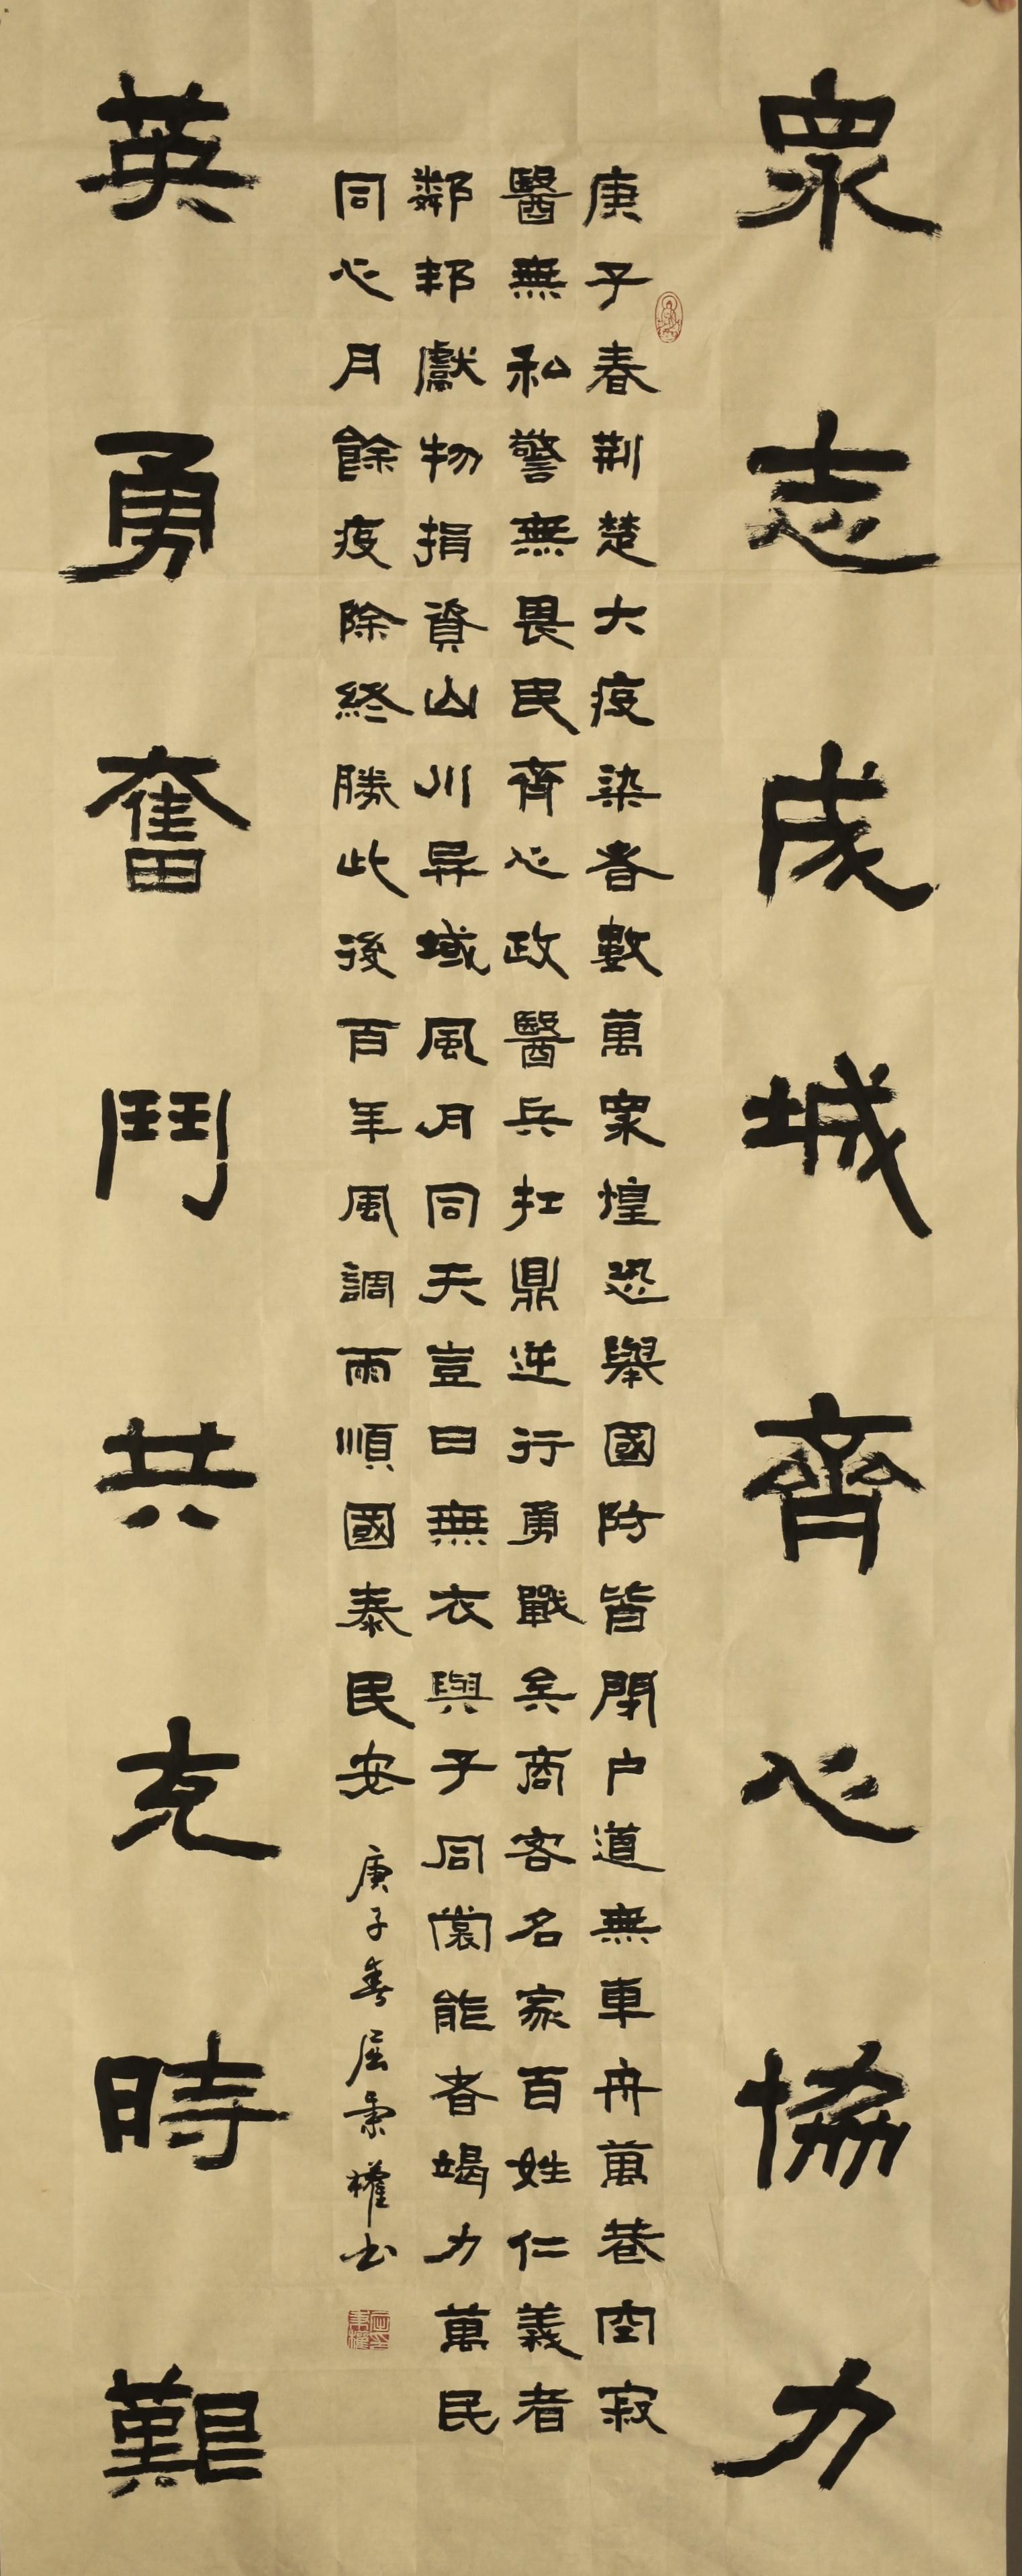 眾志成城齊心協力
庚子春荆楚大疫染者數萬眾惶恐舉國防皆閉户道無車舟萬巷空寂
醫無私警無畏民齊心政醫兵扛鼎逆行勇戰矣商客名家百姓仁義者
鄰邦獻物捐資山川异域風月同天豈曰無衣與子同裳能者竭力萬民
同心月餘疫除終勝此後百年風調雨順國泰民安 庚子春屈秉權书
英勇奮鬥共克時艱